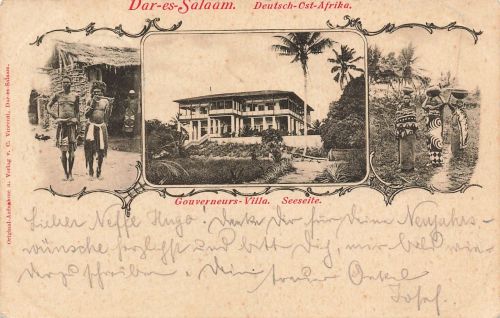 Dar-es-Salaam. Deutsch-Ost-Afrika.
Original-Aufnahme u. Verlag v. C. Vincenti, Dar-es-Salaam.
Gouverneurs-Villa. Seeseite.
Lieber Neffe Hugo! Danke Dir für Deine Neujahrs-
wünsche herzlichst und bitte Dich, mir bald wie-
der zu schreiben. Dein treuer Onkel
Josef.